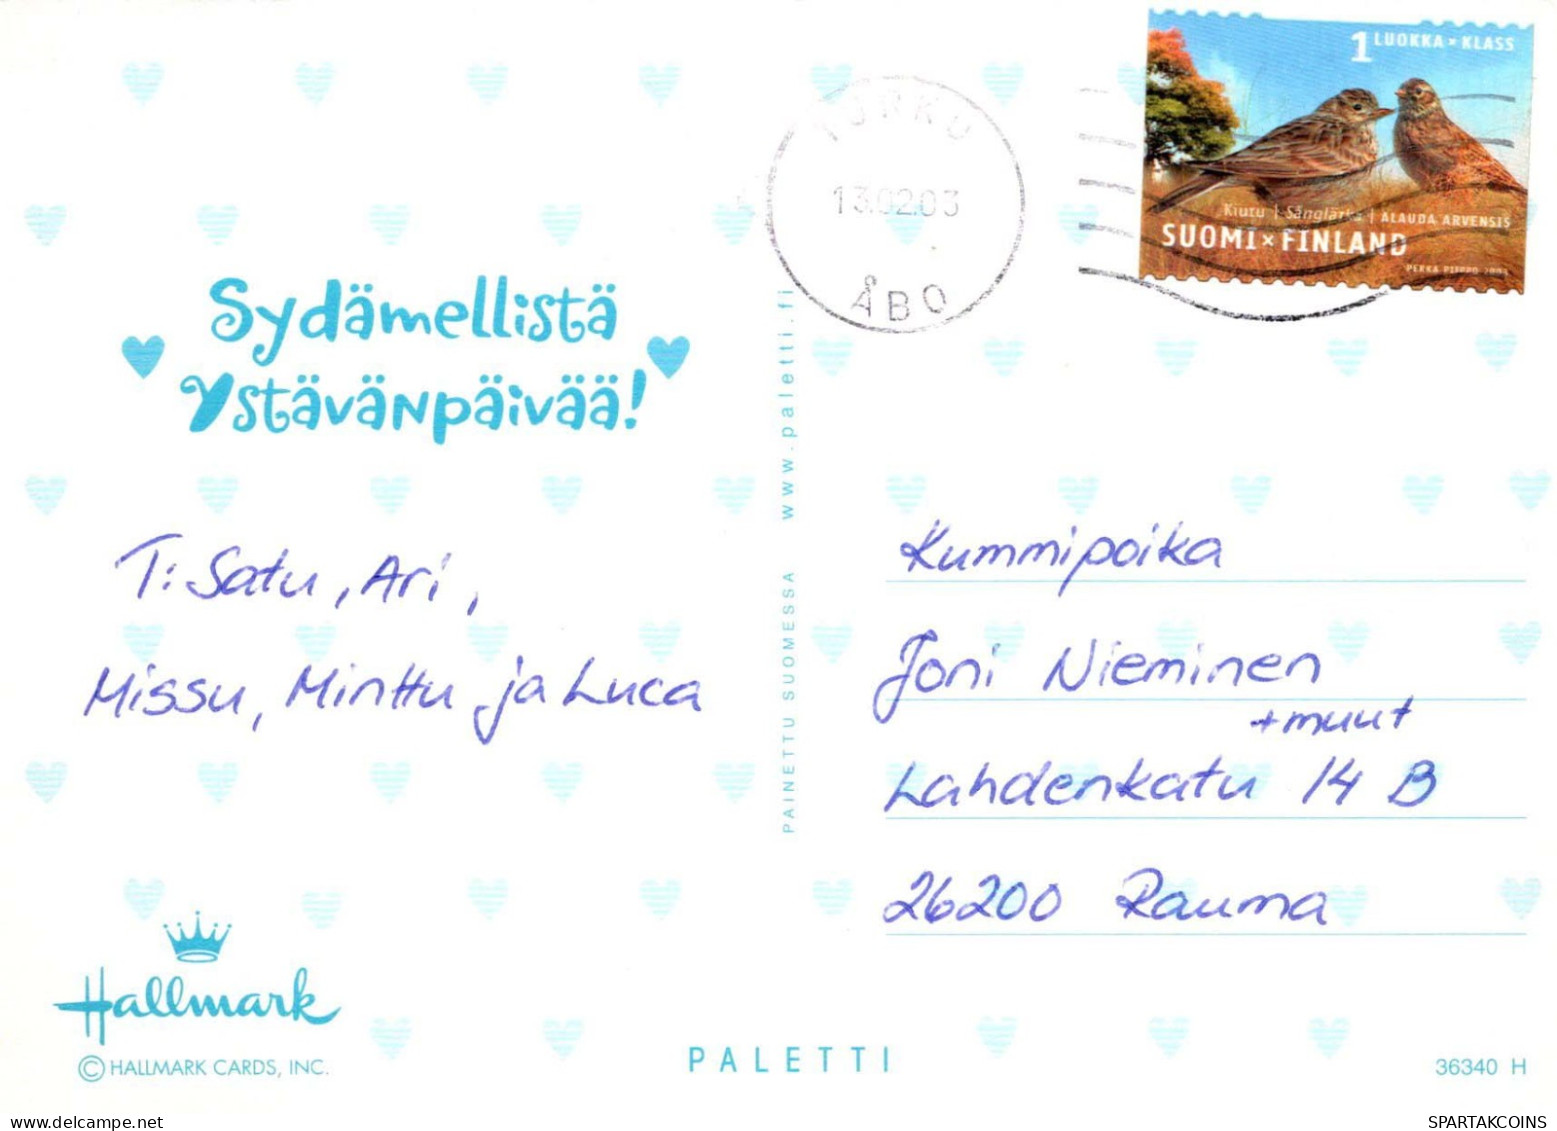 1 LUOKKA × KLASS
Kiutu | Sånglärka | ALAUDA ARVENSIS
SUOMI × FINLAND
PEKKA PIIPPO 2003
TURKU
13.02.03
ÅBO
Sydämellistä
Ystävänpäivää!
T: Satu, Ari,
Missu, Minttu ja Luca
PAINETTU SUOMESSA www.paletti.fi
Kummipoika
Joni Nieminen
+ muut
Lahdenkatu 14 B
26200 Rauma
Hallmark
© HALLMARK CARDS, INC.
PALETTI
36340 H
SPARTAKCOINS